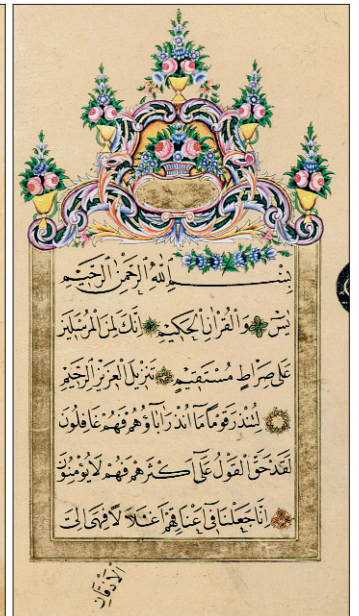 بِسْمِ اللّٰهِ الرَّحْمٰنِ الرَّحِيْمِ
يٰسٓ وَالْقُرْاٰنِ الْحَكِيْمِ اِنَّكَ لَمِنَ الْمُرْسَلِيْنَ
عَلٰى صِرَاطٍ مُسْتَقِيْمٍ تَنْزِيْلَ الْعَزِيْزِ الرَّحِيْمِ
لِتُنْذِرَ قَوْمًا مَٓا اُنْذِرَ اٰبَٓاؤُهُمْ فَهُمْ غَافِلُوْنَ
لَقَدْ حَقَّ الْقَوْلُ عَلٰٓى اَكْثَرِهِمْ فَهُمْ لَا يُؤْمِنُوْنَ
اِنَّا جَعَلْنَا فٖٓى اَعْنَاقِهِمْ اَغْلَالًا فَهِىَ اِلَى
الْاَذْقَانِ